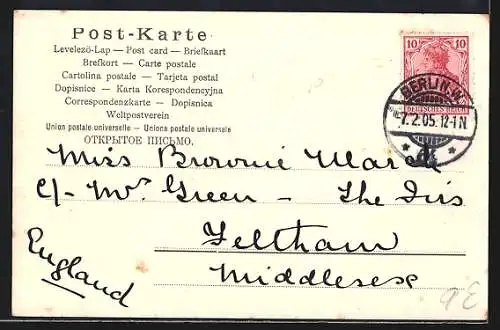 Post-Karte
Levelezö-Lap — Post card — Briefkaart
Brefkort — Carte postale
Cartolina postale — Tarjeta postal
Dopisnice — Karta Korespondencyjna
Correspondenzkarte — Dopisnica
Weltpostverein
Union postale universelle — Unione postale universale
ОТКРЫТОЕ ПИСЬМО.
10 10
DEUTSCHES REICH
BERLIN.W.
7.2.05.12-1N.
Miss Brownie
c/- Mrs Green - The Iris
Feltham
Middlesex
England